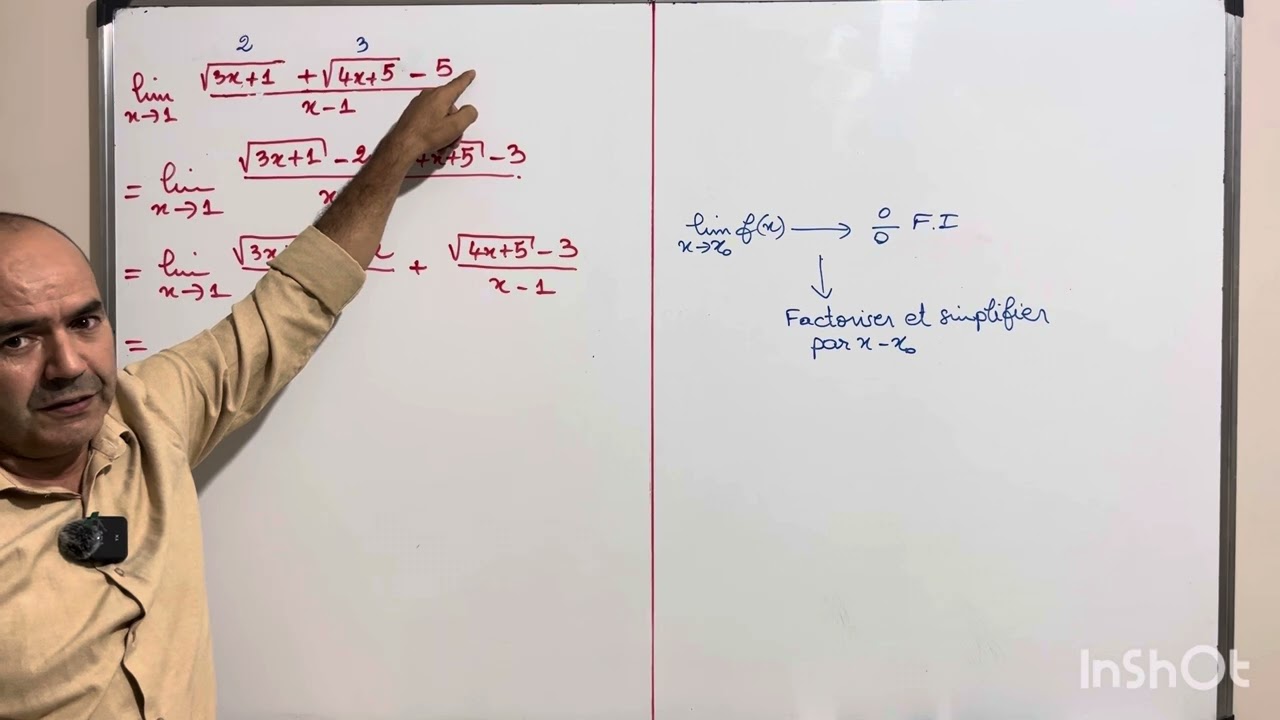 2 3
lim x→1 √(3x+1) + √(4x+5) - 5 / x-1
= lim x→1 √(3x+1) - 2 x+5 - 3 / x
= lim x→1 √3x + √(4x+5) - 3 / x-1
=
lim x→x₀ f(x) → 0/0 F.I
↓
Factoriser et simplifier
par x - x₀
InShOt